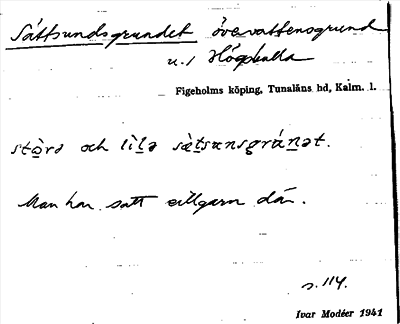 Sättsundsgrundet övevattensgrund
u. / Högskalla
Figeholms köping, Tunaläns hd, Kalm. l.
stòrə och lìlə sæ̀tsunsgrúnət.
Man har satt sillgarn där.
s. 114.
Ivar Modéer 1941